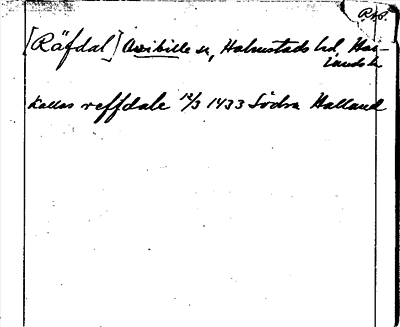 Rtg.
[Räfdal] Asibille sn, Halmstads hd, Hal-
lands l.
kallas reffdale 12/3 1433 Södra Halland